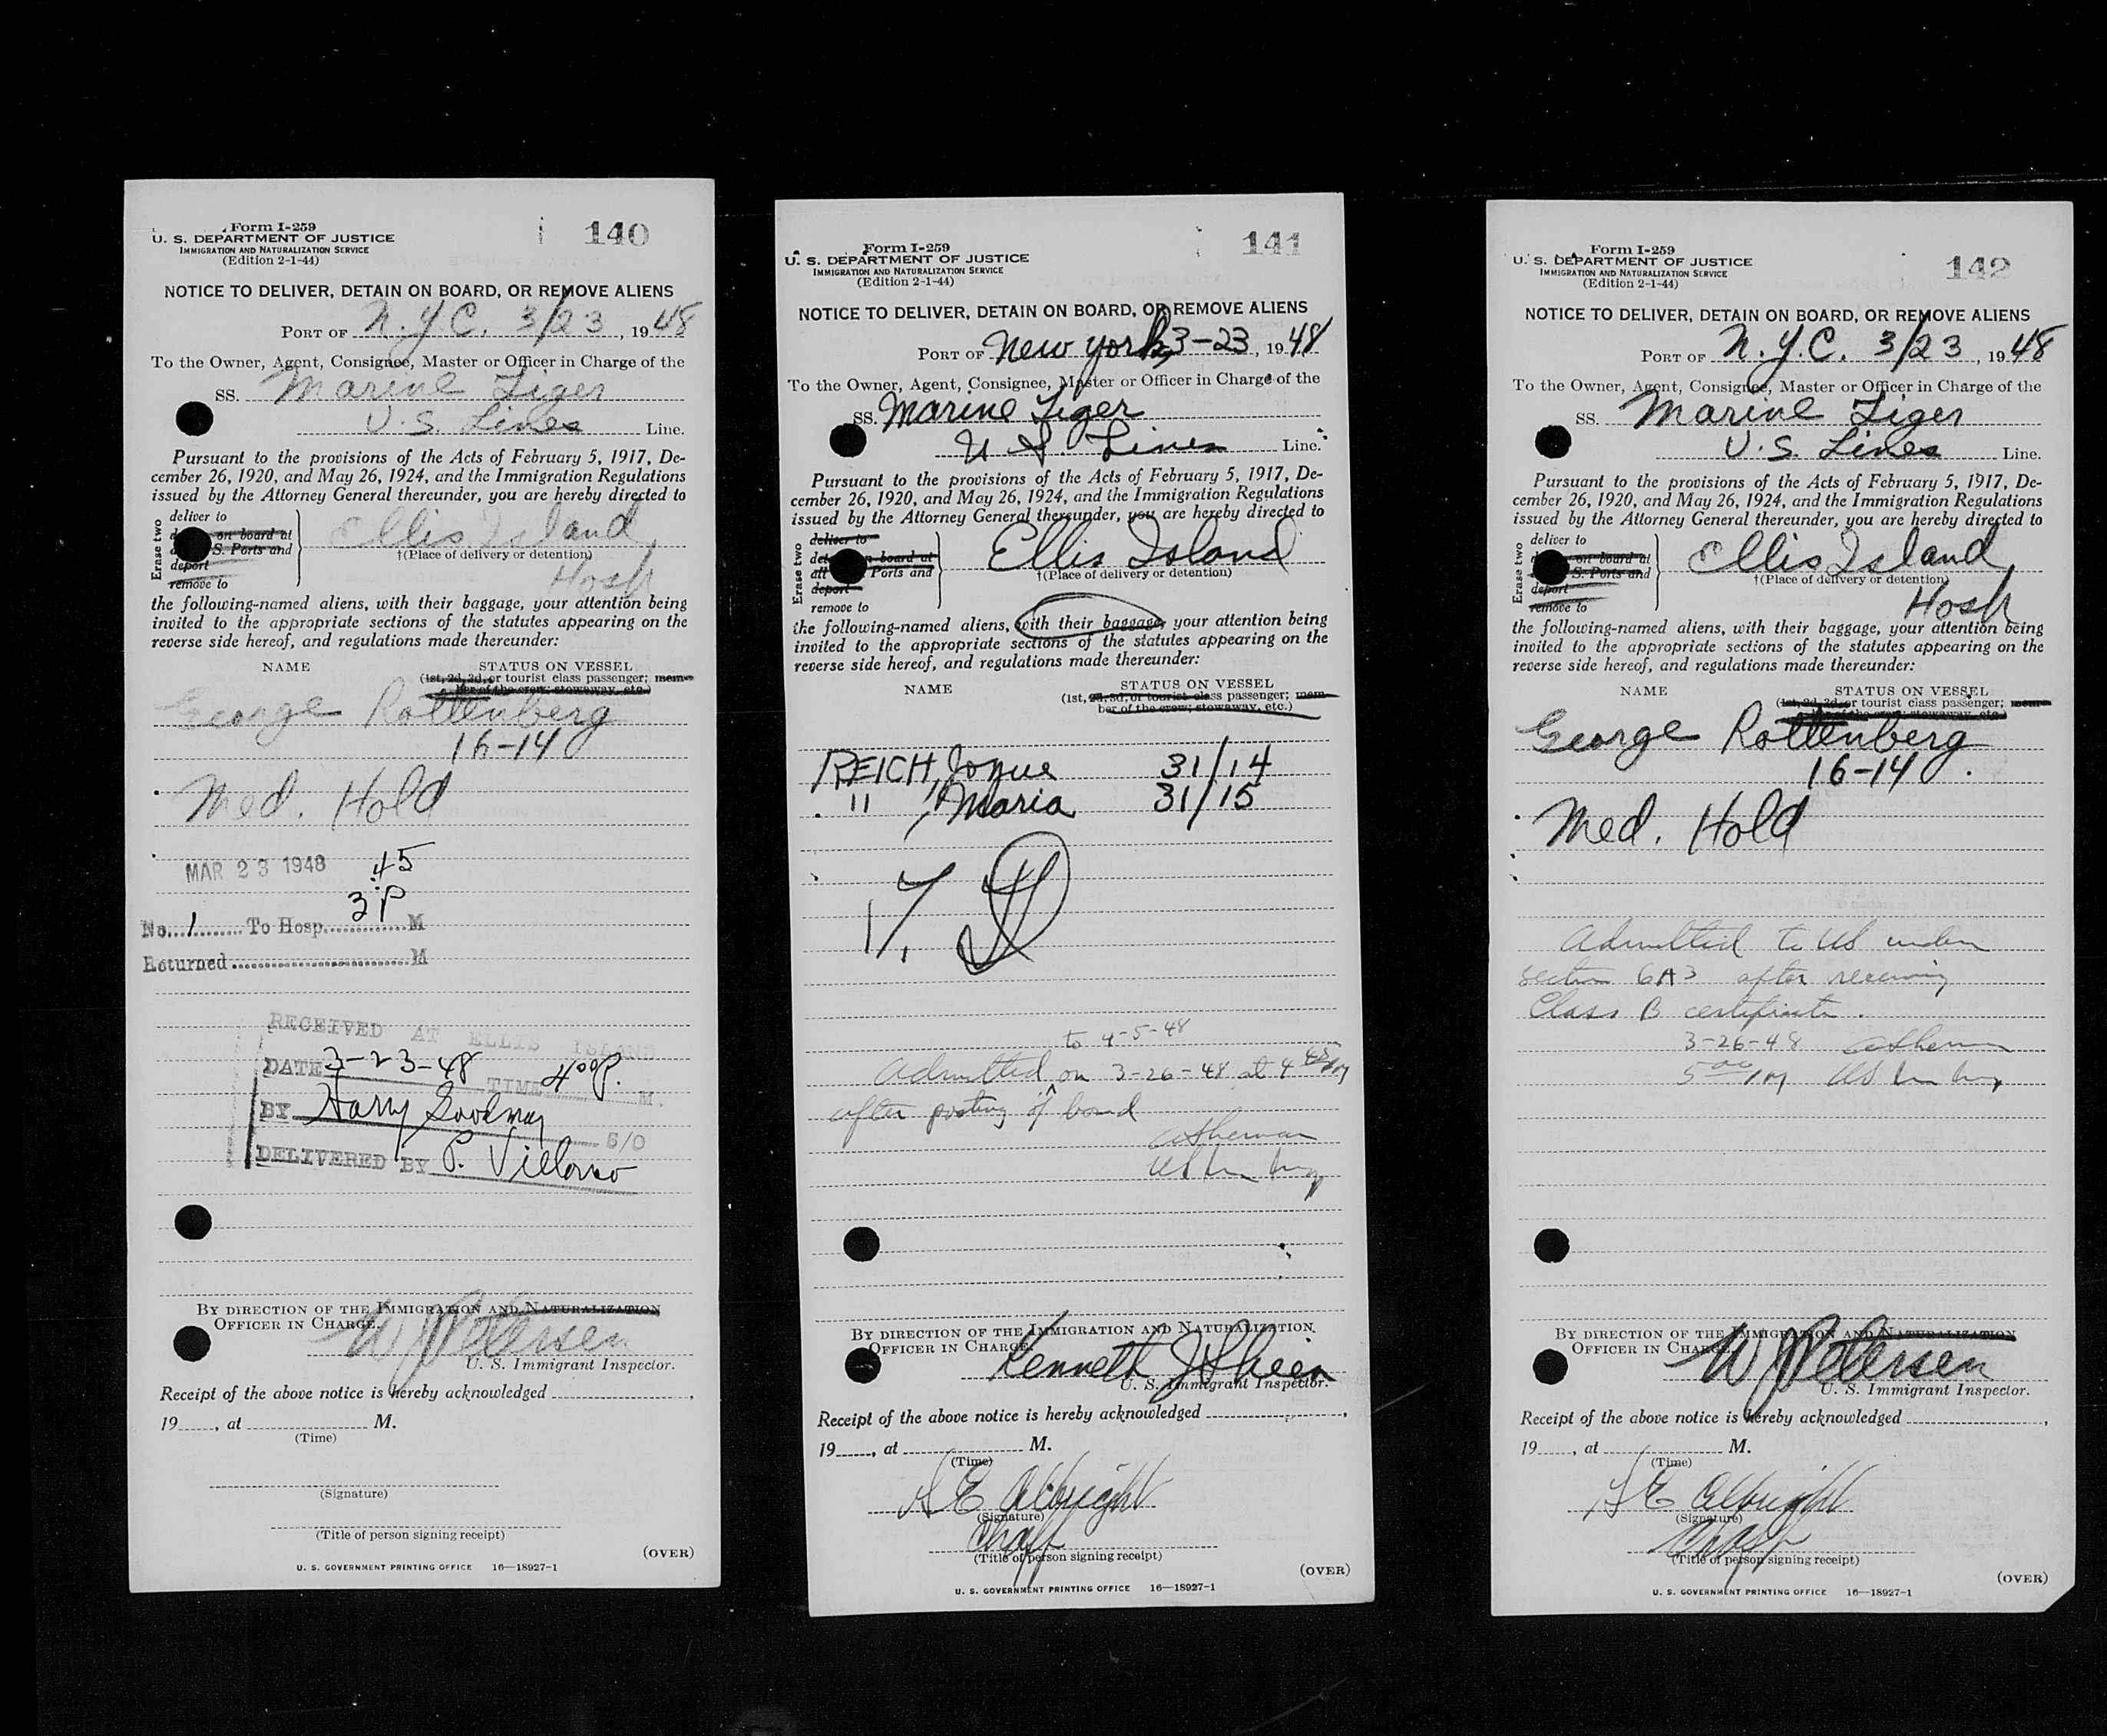 Form I-259
U. S. DEPARTMENT OF JUSTICE
IMMIGRATION AND NATURALIZATION SERVICE
(Edition 2-1-44)
140
NOTICE TO DELIVER, DETAIN ON BOARD, OR REMOVE ALIENS
PORT OF N.Y.C. 3/23, 1948
To the Owner, Agent, Consignee, Master or Officer in Charge of the
SS. Marine Tiger
U.S. Lines Line.
Pursuant to the provisions of the Acts of February 5, 1917, De-
cember 26, 1920, and May 26, 1924, and the Immigration Regulations
issued by the Attorney General thereunder, you are hereby directed to
Erase two
deliver to
on board at
S. Ports and
deport
remove to
Ellis Island
†(Place of delivery or detention)
Hosp
the following-named aliens, with their baggage, your attention being
invited to the appropriate sections of the statutes appearing on the
reverse side hereof, and regulations made thereunder:
NAME STATUS ON VESSEL
(1st, 2d, 3d, or tourist class passenger; mem-
ber of the crew; stowaway, etc.)
George Rottenberg
16-14
Med. Hold
MAR 23 1948 45
3 P
No. 1 To Hosp. M
Returned M
RECEIVED AT ELLIS ISLAND
DATE 3-23-48 TIME 4 00 P. M.
BY Harry Goodman S/O
DELIVERED BY P.
BY DIRECTION OF THE IMMIGRATION AND NATURALIZATION
OFFICER IN CHARGE.
W J Petersen
U. S. Immigrant Inspector.
Receipt of the above notice is hereby acknowledged ,
19 , at M.
(Time)
(Signature)
(Title of person signing receipt)
(OVER)
U. S. GOVERNMENT PRINTING OFFICE 16—18927-1
Form I-259
U. S. DEPARTMENT OF JUSTICE
IMMIGRATION AND NATURALIZATION SERVICE
(Edition 2-1-44)
141
NOTICE TO DELIVER, DETAIN ON BOARD, OR REMOVE ALIENS
PORT OF New York, 3-23, 1948
To the Owner, Agent, Consignee, Master or Officer in Charge of the
SS. Marine Tiger
U S. Lines Line.
Pursuant to the provisions of the Acts of February 5, 1917, De-
cember 26, 1920, and May 26, 1924, and the Immigration Regulations
issued by the Attorney General thereunder, you are hereby directed to
Erase two
deliver to
on board at
all Ports and
deport
remove to
Ellis Island
†(Place of delivery or detention)
the following-named aliens, with their baggage, your attention being
invited to the appropriate sections of the statutes appearing on the
reverse side hereof, and regulations made thereunder:
NAME STATUS ON VESSEL
(1st, 2d, 3d, or tourist class passenger; mem-
ber of the crew; stowaway, etc.)
REICH, 31/14
" , Maria 31/15
to 4-5-48
Admitted on 3-26-48 at 4 45 PM
after posting of bond
A Sherman
US Im Insp
BY DIRECTION OF THE IMMIGRATION AND NATURALIZATION
OFFICER IN CHARGE.
Kenneth J Sheen
U. S. Immigrant Inspector.
Receipt of the above notice is hereby acknowledged ,
19 , at M.
(Time)
A E Albright
(Signature)
(Title of person signing receipt)
(OVER)
U. S. GOVERNMENT PRINTING OFFICE 16—18927-1
Form I-259
U. S. DEPARTMENT OF JUSTICE
IMMIGRATION AND NATURALIZATION SERVICE
(Edition 2-1-44)
142
NOTICE TO DELIVER, DETAIN ON BOARD, OR REMOVE ALIENS
PORT OF N.Y.C. 3/23, 1948
To the Owner, Agent, Consignee, Master or Officer in Charge of the
SS. Marine Tiger
U.S. Lines Line.
Pursuant to the provisions of the Acts of February 5, 1917, De-
cember 26, 1920, and May 26, 1924, and the Immigration Regulations
issued by the Attorney General thereunder, you are hereby directed to
Erase two
deliver to
on board at
S. Ports and
deport
remove to
Ellis Island
†(Place of delivery or detention)
Hosp
the following-named aliens, with their baggage, your attention being
invited to the appropriate sections of the statutes appearing on the
reverse side hereof, and regulations made thereunder:
NAME STATUS ON VESSEL
(1st, 2d, 3d, or tourist class passenger; mem-
ber of the crew; stowaway, etc.)
George Rottenberg
16-14
Med. Hold
Admitted to US under
section 6A3 after receiving
Class B certificate.
3-26-48 A Sherman
5 00 PM US Im Insp
BY DIRECTION OF THE IMMIGRATION AND NATURALIZATION
OFFICER IN CHARGE.
W J Petersen
U. S. Immigrant Inspector.
Receipt of the above notice is hereby acknowledged ,
19 , at M.
(Time)
A E Albright
(Signature)
(Title of person signing receipt)
(OVER)
U. S. GOVERNMENT PRINTING OFFICE 16—18927-1